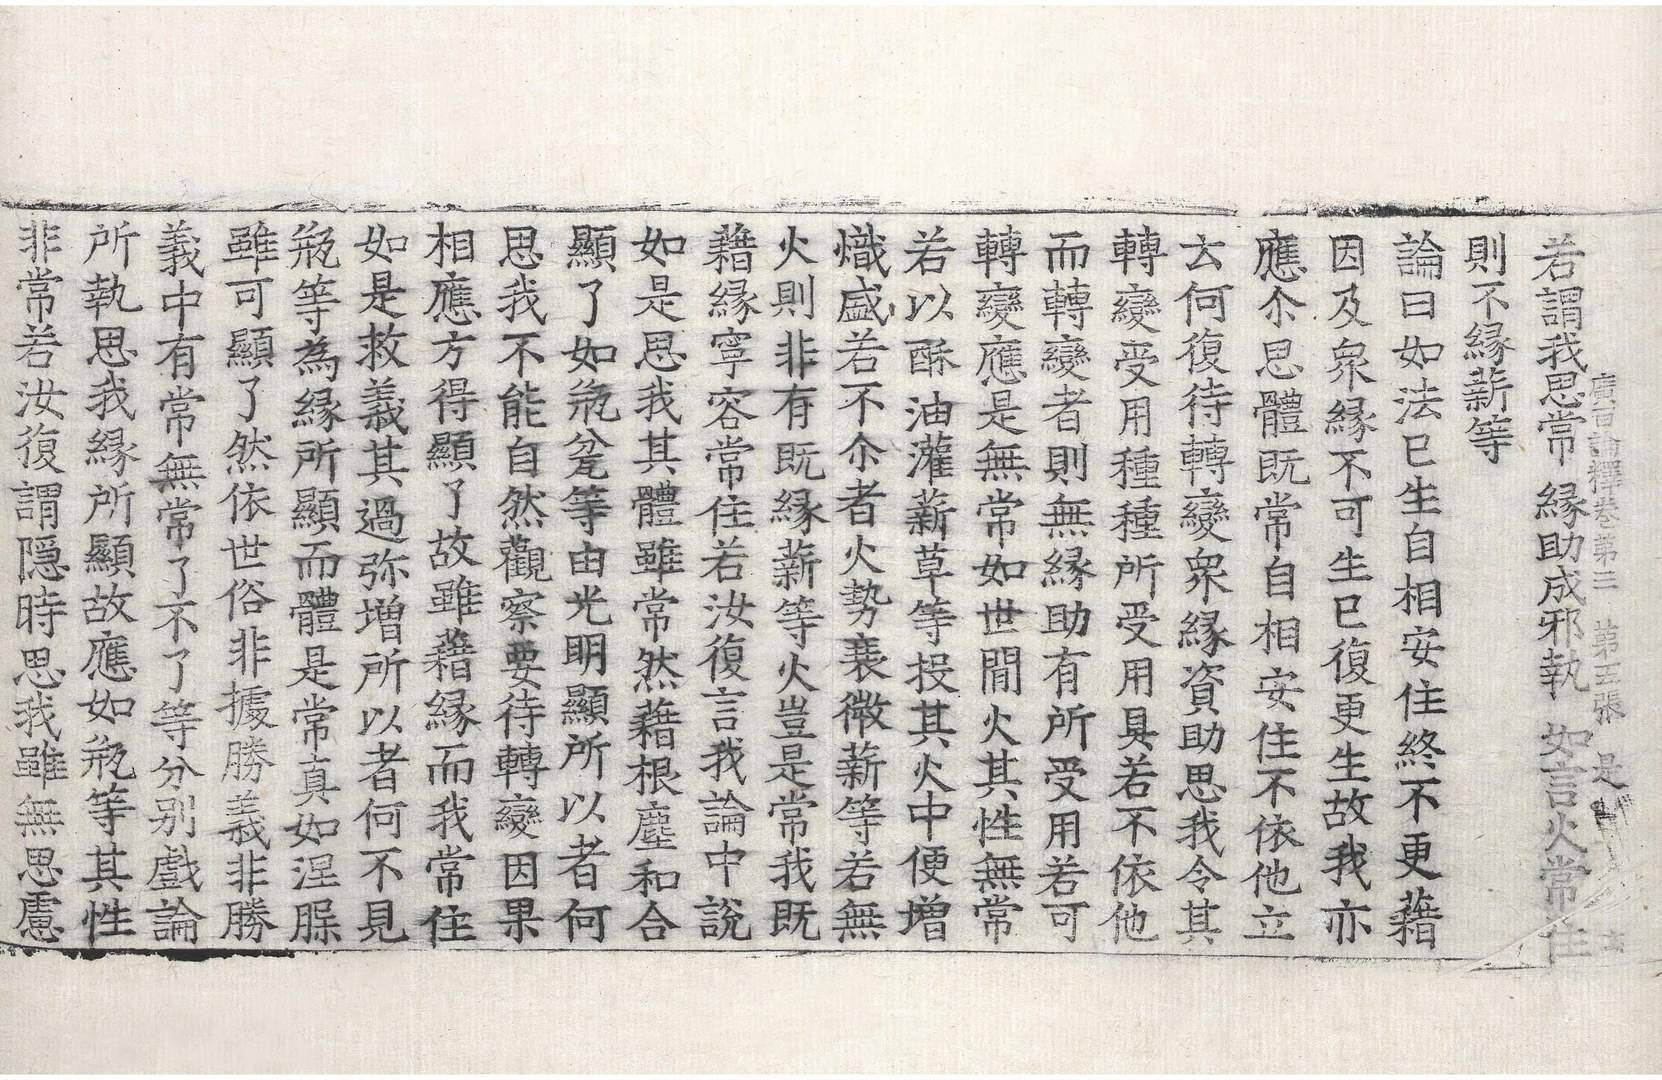 廣百論釋卷第三 第五張 是
若謂我思常 緣助成邪執 如言火常住
則不緣薪等
論曰如法已生自相安住終不更藉
因及眾緣不可生已復更生故我亦
應尒思體既常自相安住不依他立
云何復待轉變眾緣資助思我令其
轉變受用種種所受用具若不依他
而轉變者則無緣助有所受用若可
轉變應是無常如世間火其性無常
若以酥油灌薪草等投其火中便增
熾盛若不尒者火勢衰微薪等若無
火則非有既緣薪等火豈是常我既
藉緣寧容常住若汝復言我論中說
如是思我其體雖常然藉根塵和合
顯了如瓶瓮等由光明顯所以者何
思我不能自然觀察要待轉變因果
相應方得顯了故雖藉緣而我常住
如是救義其過弥增所以者何不見
瓶等為緣所顯而體是常真如涅槃
雖可顯了然依世俗非據勝義非勝
義中有常無常了不了等分別戲論
所執思我緣所顯故應如瓶等其性
非常若汝復謂隱時思我雖無思慮